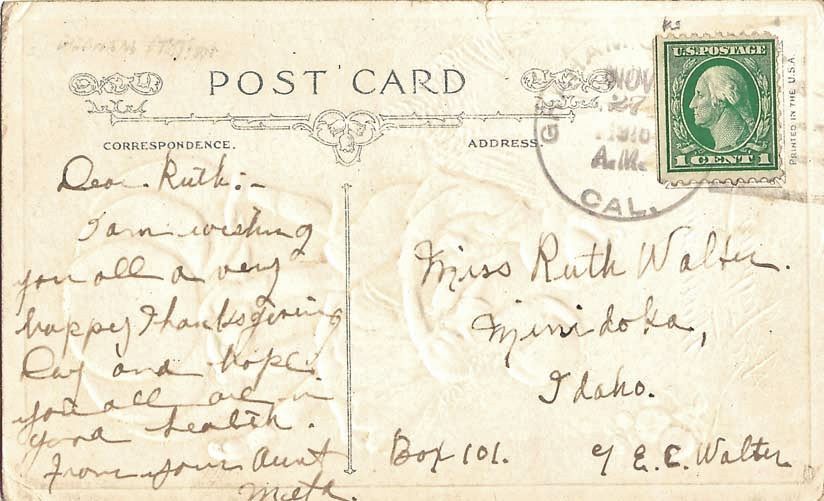 POST CARD
CORRESPONDENCE.
ADDRESS.
NOV
27
A.M.
CAL.
U.S. POSTAGE
1 CENT 1
PRINTED IN THE U.S.A.
Dear Ruth:-
I am wishing
you all a very
happy Thanksgiving
Day and hope
you all are in
good health.
From your Aunt
Meta.
Miss Ruth Walter.
Minidoka,
Idaho.
Box 101.
℅ E.C. Walter